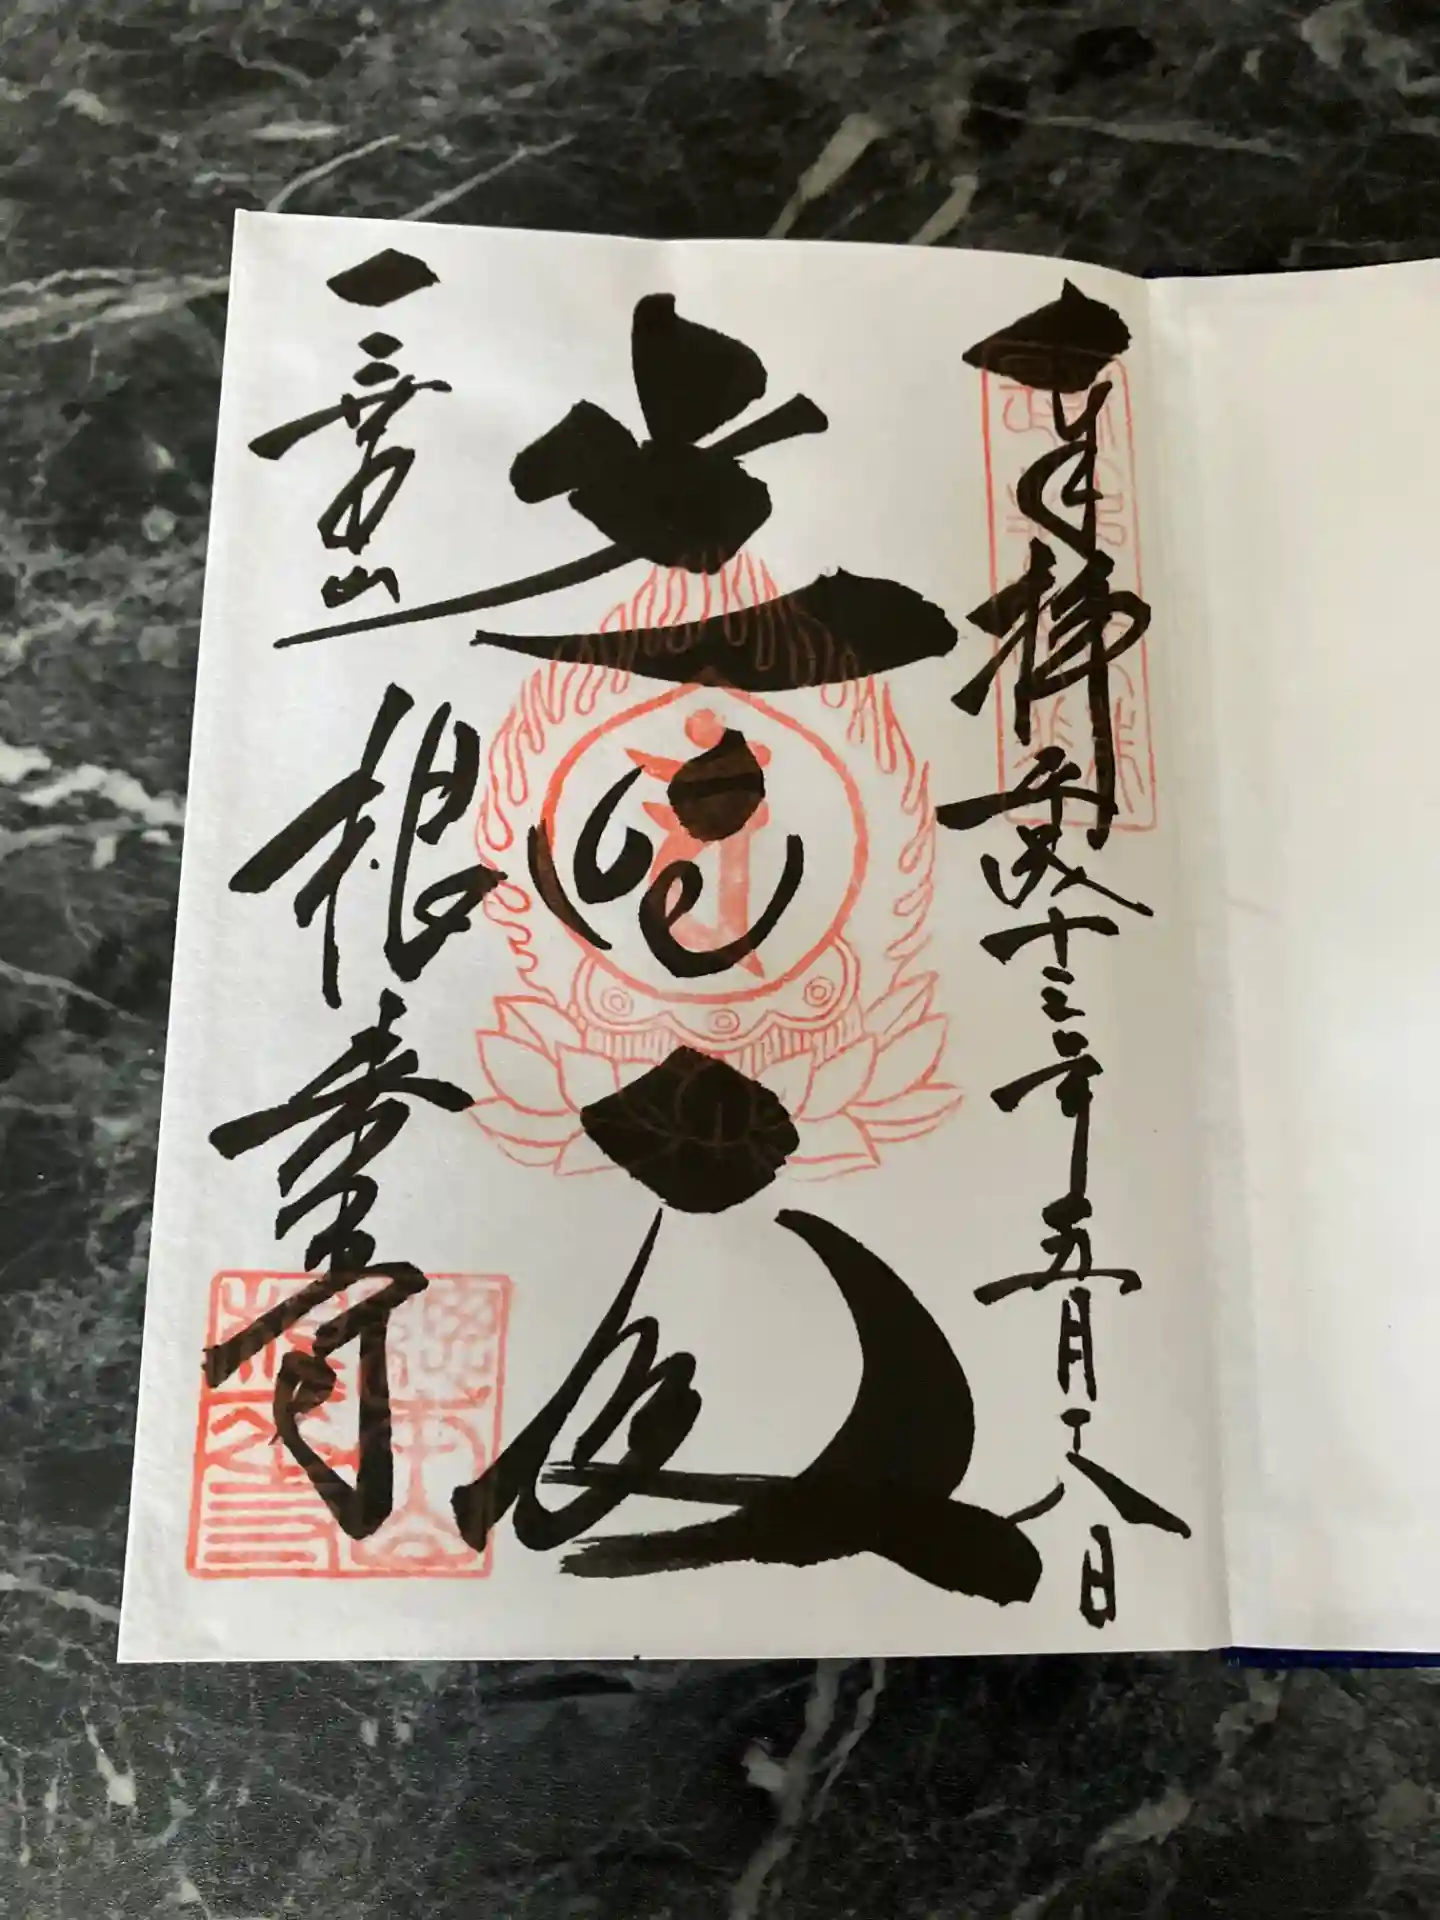 奉拝 平成十三年五月十八日
光明殿
一乗山
根来寺